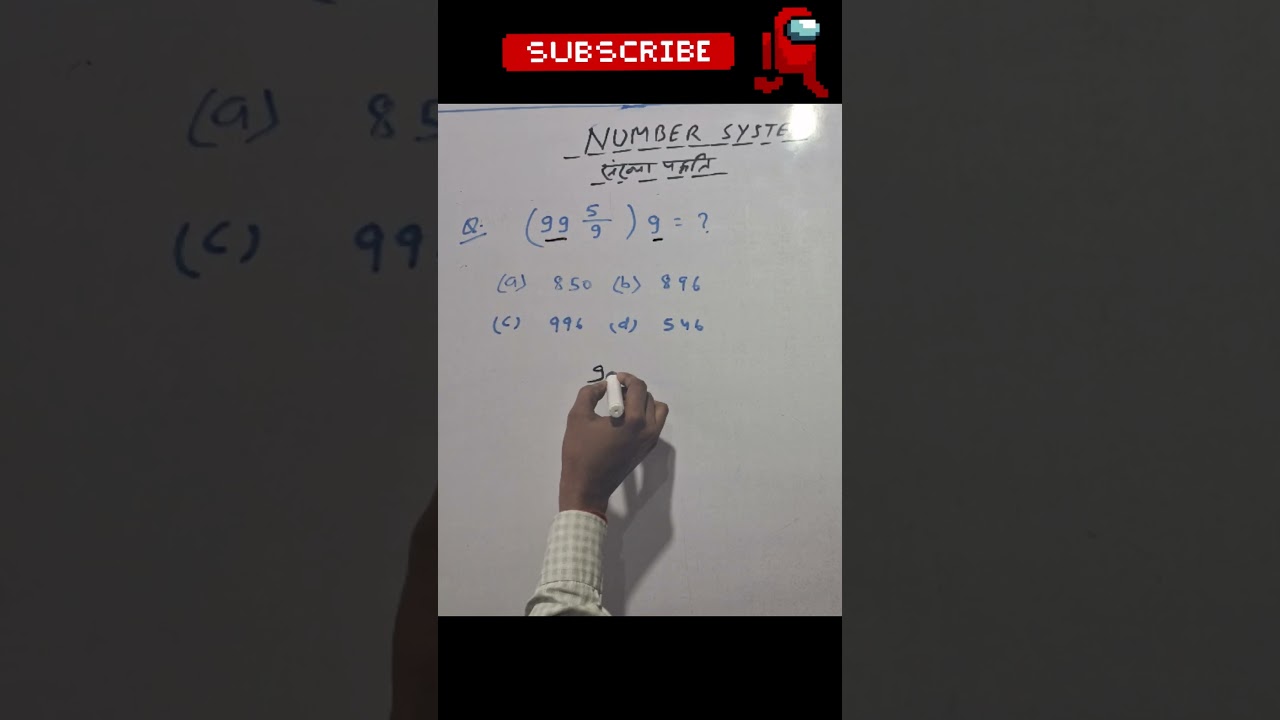 SUBSCRIBE
NUMBER SYSTE
संख्या पद्धति
Q. (99 5/9) 9 = ?
(a) 850 (b) 896
(c) 996 (d) 546
9
(a) 85
(c) 99